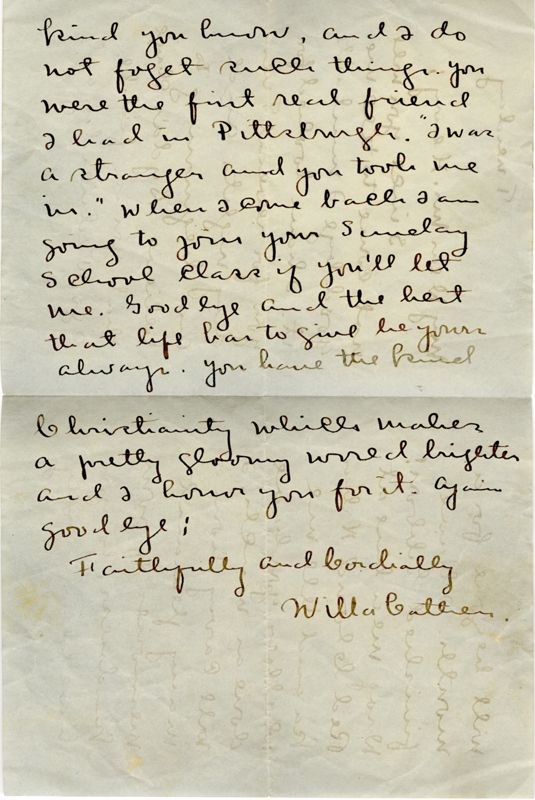 kind you know, and I do
not foget such things. you
were the first real friend
I had in Pittsburgh. "I was
a stranger and you took me
in." When I come back I am
going to join your Sunday
School Class if you'll let
me. Goodbye and the best
that life has to give be yours
always. You have the kind
Christianity which makes
a pretty gloomy world brighter
and I honor you for it. Again
goodbye!
Faithfully and Cordially
Willa Cather.